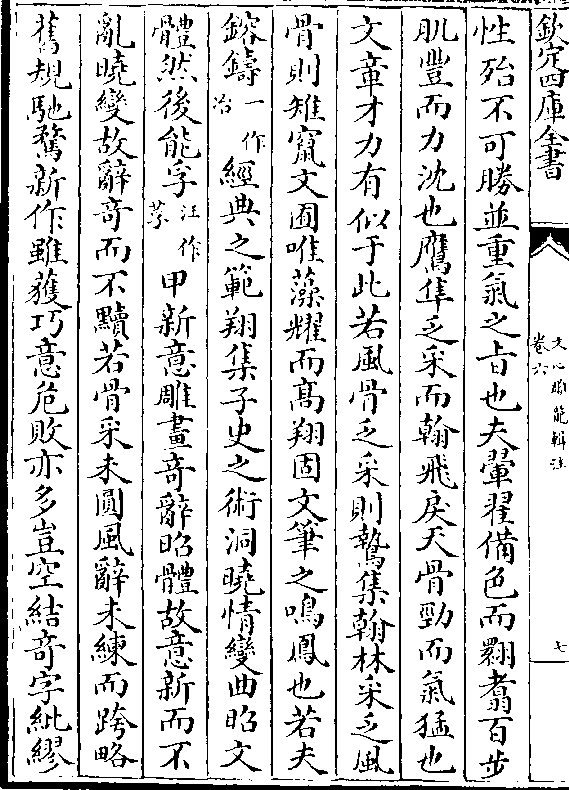 欽定四庫全書
文心雕龍輯注
卷六
七
性殆不可勝並重氣之旨也夫翬翟備色而翾翥百步
肌豐而力沈也鷹隼乏采而翰飛戾天骨勁而氣猛也
文章才力有似于此若風骨乏采則鷙集翰林采乏風
骨則雉竄文囿唯藻耀而高翔固文筆之鳴鳳也若夫
鎔鑄一作冶經典之範翔集子史之術洞曉情變曲昭文
體然後能孚汪作莩甲新意雕畫奇辭昭體故意新而不
亂曉變故辭奇而不黷若骨采未圓風辭未練而跨略
舊規馳騖新作雖獲巧意危敗亦多豈空結奇字紕繆